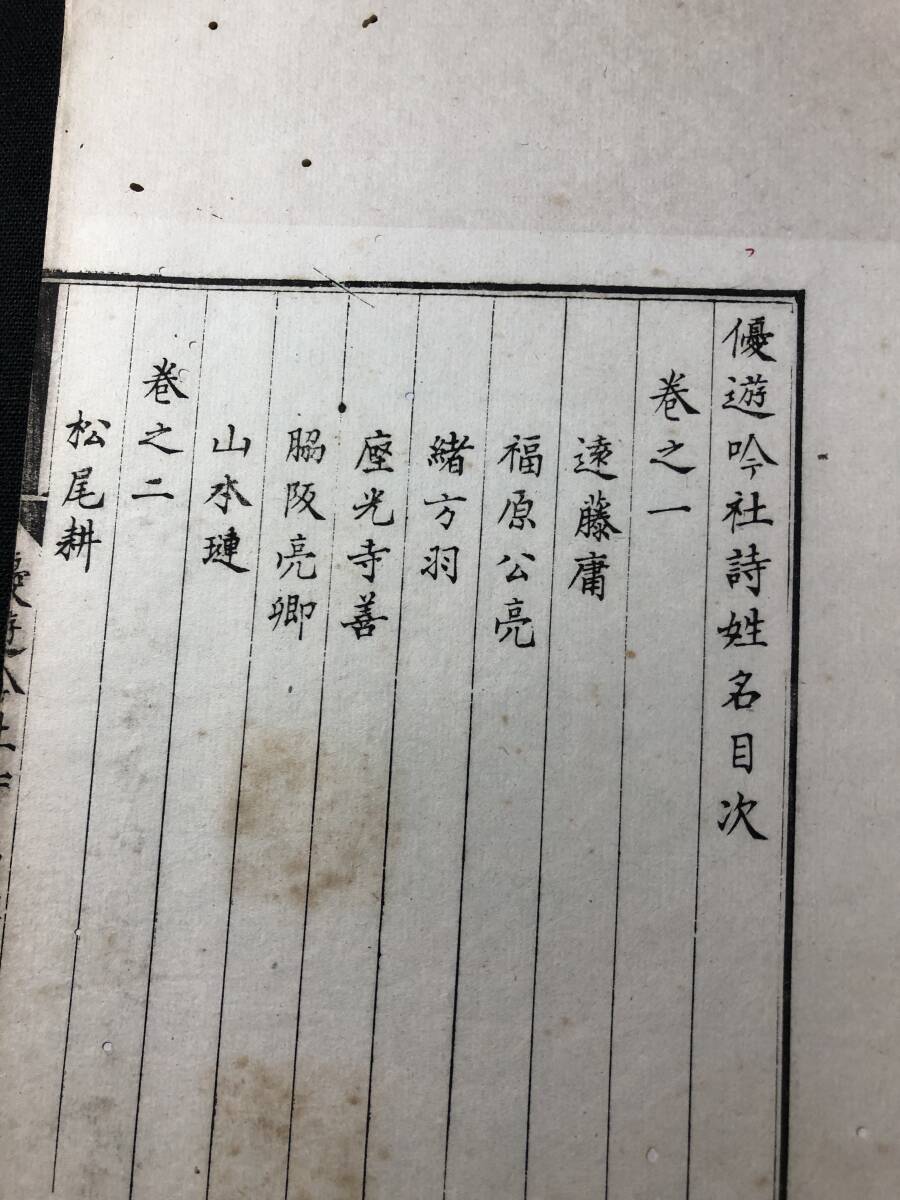 優遊吟社詩姓名目次
巻之一
遠藤庸
福原公亮
緒方羽
座光寺善
脇阪亮卿
山本璉
巻之二
松尾耕